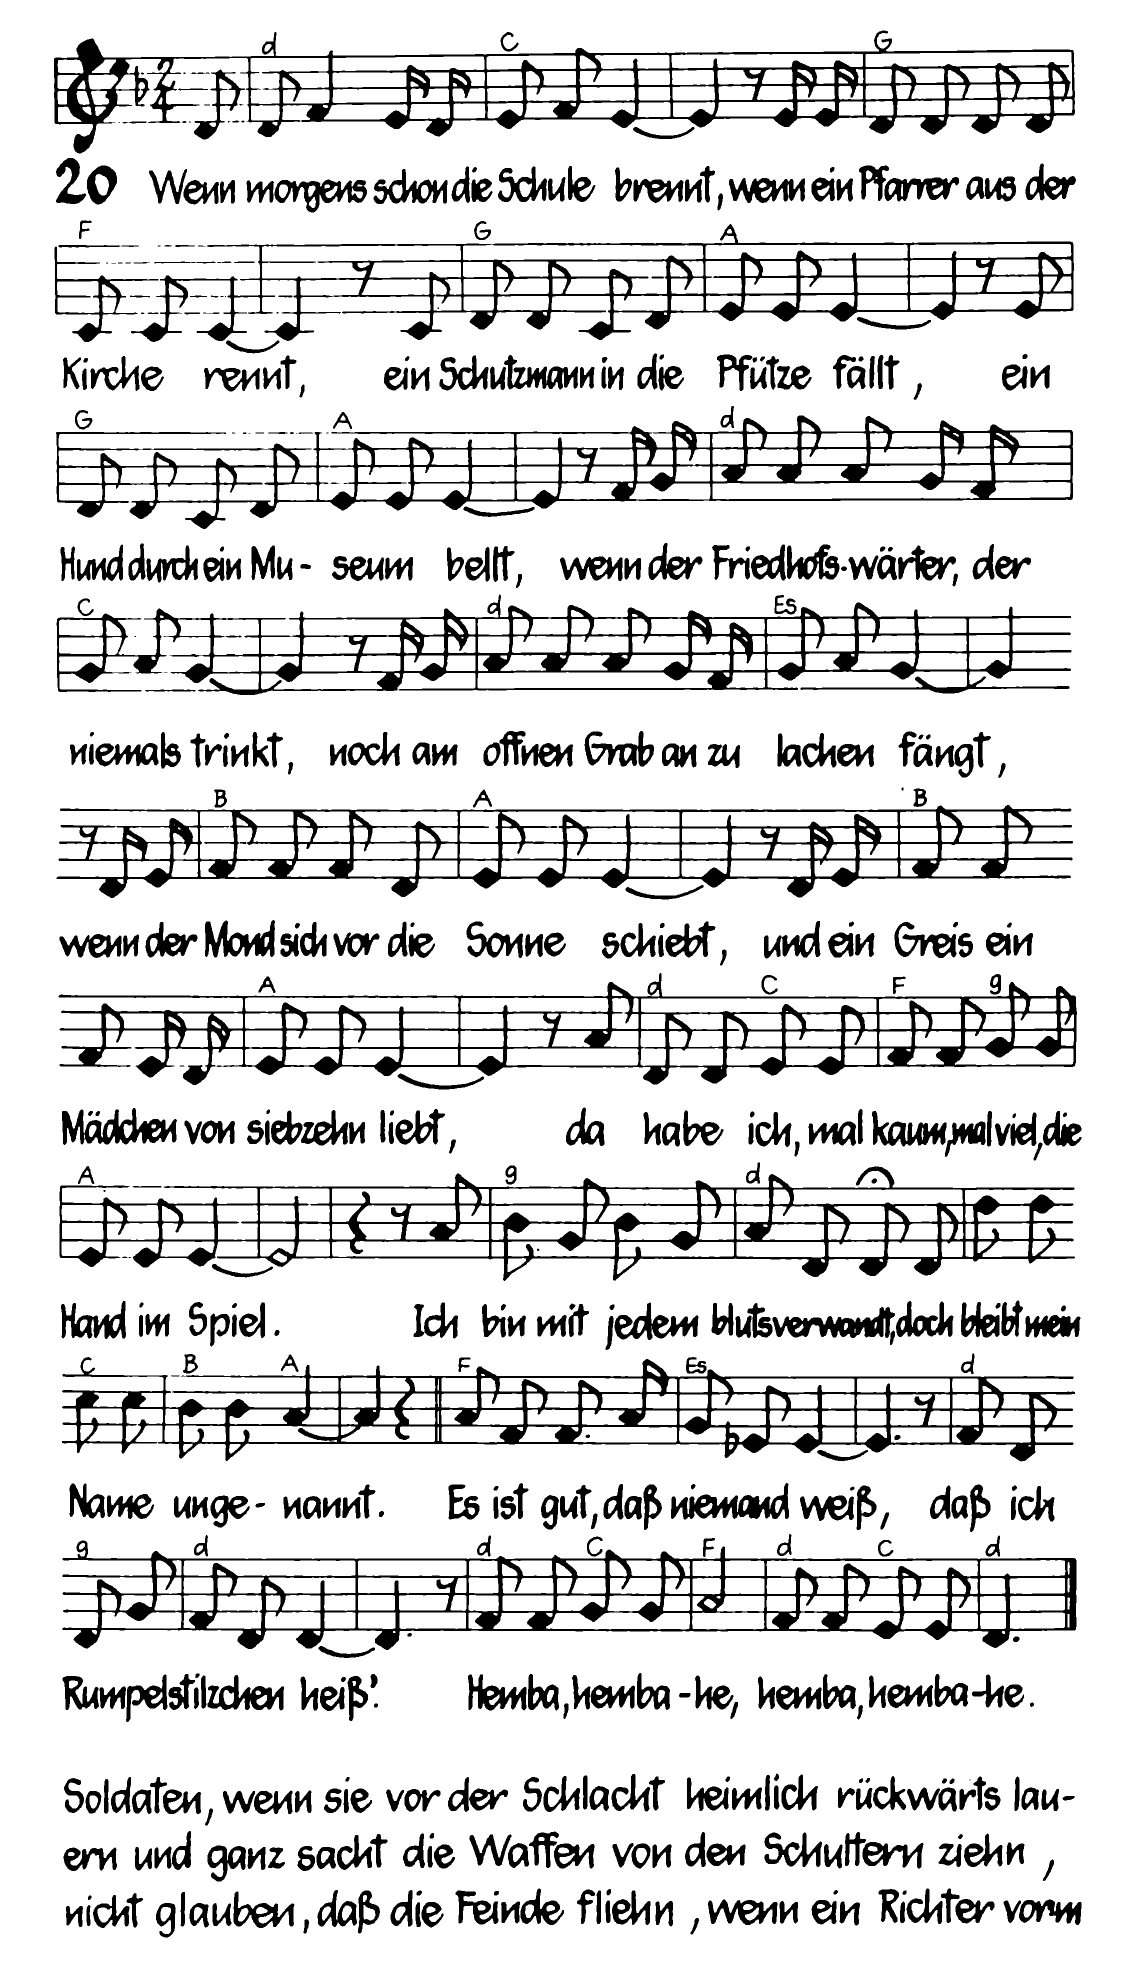 d C G
20 Wenn morgens schon die Schule brennt, wenn ein Pfarrer aus der
F G A
Kirche rennt, ein Schutzmann in die Pfütze fällt, ein
G A d
Hund durch ein Mu- seum bellt, wenn der Friedhofs-wärter, der
C d Es
niemals trinkt, noch am offnen Grab an zu lachen fängt,
B A B
wenn der Mond sich vor die Sonne schiebt, und ein Greis ein
A d C F g
Mädchen von siebzehn liebt, da habe ich, mal kaum, mal viel, die
A g d
Hand im Spiel. Ich bin mit jedem blutsverwandt, doch bleibt mein
C B A F Es d
Name unge- nannt. Es ist gut, daß niemand weiß, daß ich
g d d C F d C d
Rumpelstilzchen heiß'. Hemba, hemba-he, hemba, hemba-he.
Soldaten, wenn sie vor der Schlacht heimlich rückwärts lau-
ern und ganz sacht die Waffen von den Schultern ziehn,
nicht glauben, daß die Feinde fliehn, wenn ein Richter vorm